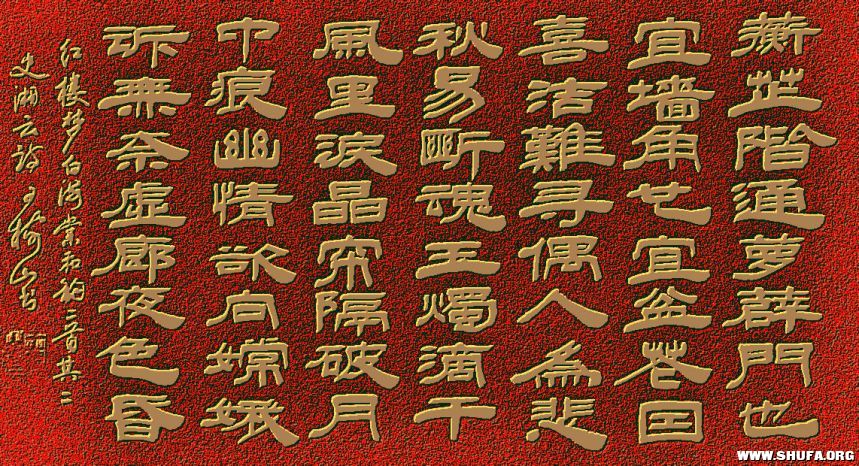 蘅芷階通萝薜門也
宜墙角也宜盆花因
喜洁難寻偶人為悲
秋易断魂玉烛滴干
風里淚晶帘隔破月
中痕幽情欲向嫦娥
訴無奈虚廊夜色昏
红楼梦白海棠和韵二首其二
史湘云诗
WWW.SHUFA.ORG